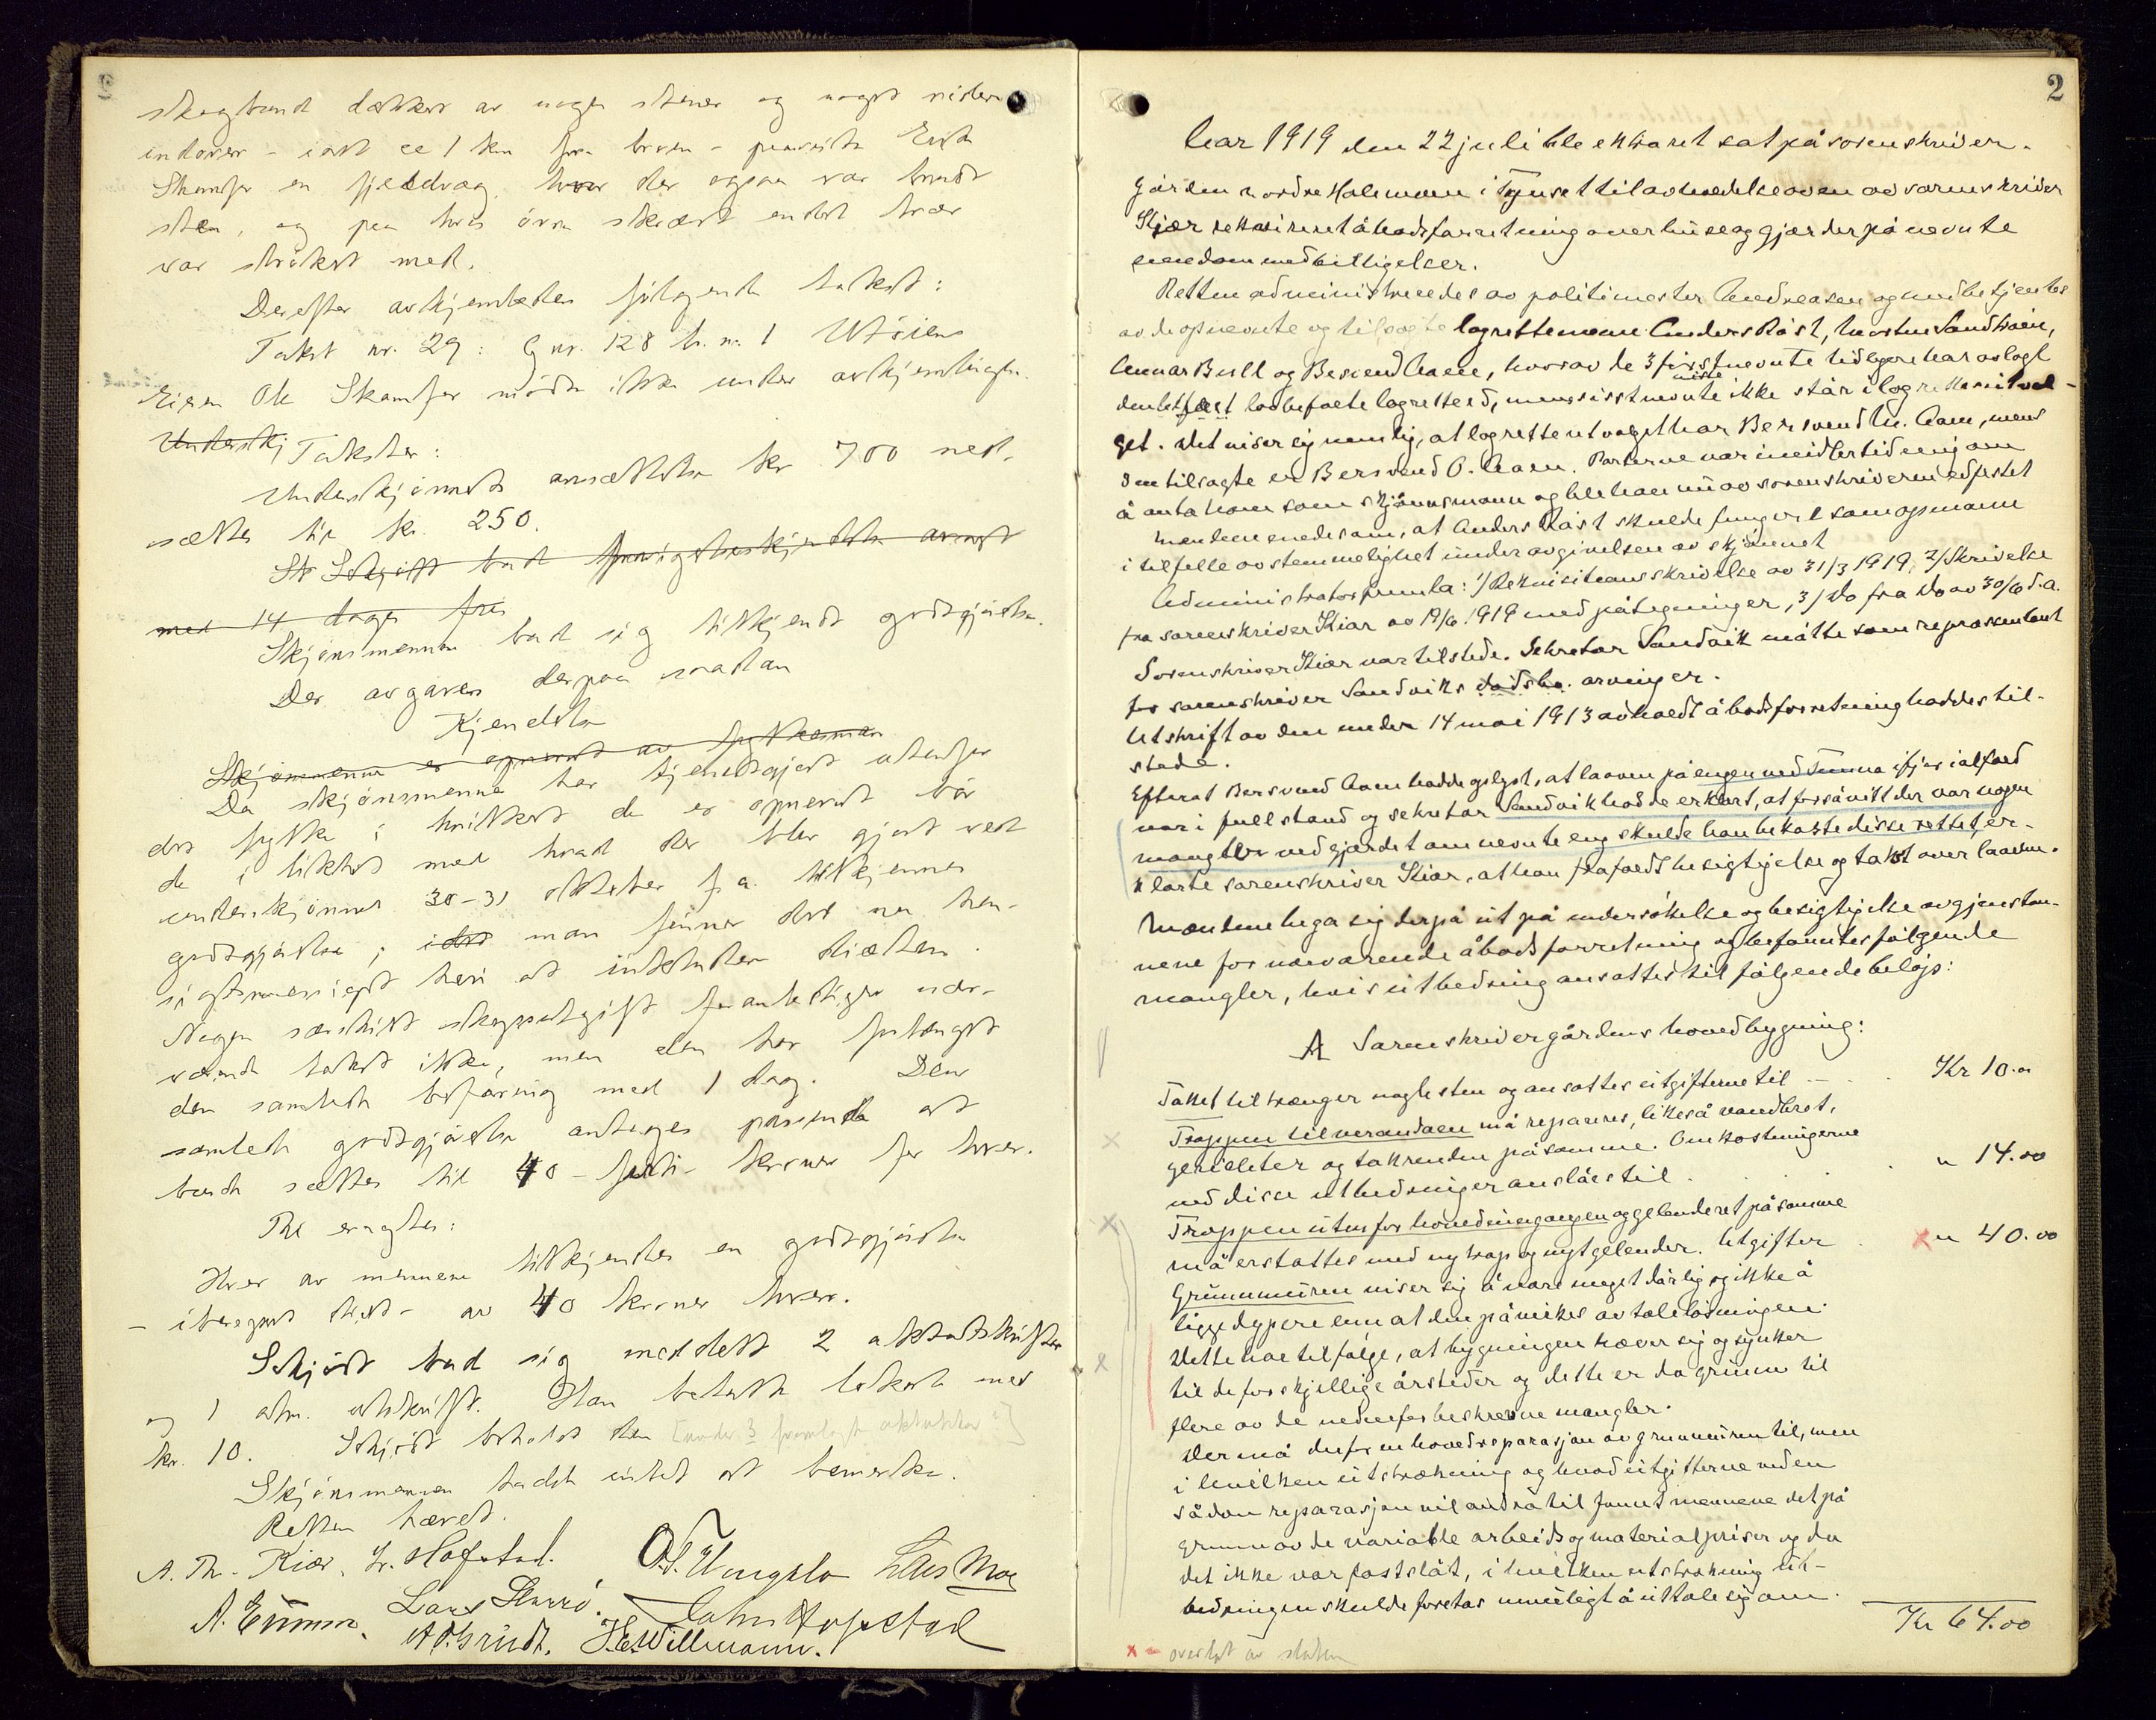 skogbund dækket av nogen stener og noget
indover - i alt ca 1 km fra
Skamfer en fjeldvæg, hvor der ogsaa var brudt
sten, og paa hvis övre skjært endel trær
var ströket med.
Derefter avhjemledes fölgende takst:
Takst nr. 29: G nr. 128 b. nr. 1 Utöien
Eieren Ole Skamfer mödte ikke under avhjemlingen.
Underskj Takster:
Underskjönnets ansættelse kr 700 ned-
sættes til kr. 250.
Schjött bad
med 14 dages fri
Skjönsmennene bad sig tilkjendt godtgjörelse.
Der avgaves derpaa saadan
Kjendelse
Skjönmennene er opnevnt av fylkesman
Da skjönsmennene har tjenestgjort utenfor
det fylke i hvilket de er opnevnt bör
de i likhet med hvad der blev gjort ved
underskjönnet 30-31 oktober f.a. tilkjennes
godtgjörelse; idet man finner det nu hen-
sigtsmessigst heri at inkludere diæten.
Nogen særskilt skyssutgift foranlediger nær-
værende takst ikke, men den har forlænget
den samlede befaring med 1 dag. Den
samlede godtgjörelse antages passende at
burde sættes til 40 - förti - kroner for hver.
Thi eragtes:
Hver av mennene tilkjendes en godtgjörelse
- iberegnet diæt - av 40 kroner hver.
Schjött bad sig meddelt 2 aktutskrifter
og 1 alm. utskrift. Han betalte takst med
kr. 10. Schjött beholdt den [under 3 fremlagte aktstykker]
Skjönsmennene hadde intet at bemerke.
Retten hævet.
A. Th. Kiær. Hr. Hofstad. O.T. Ungslo Lars Moe
A. Eimun. Lars Sturrö. John Hofstad
A O. Grudt. H.E. Willmann.
2
Aar 1919 den 22 juli ble ekstraret sat på sorenskriver-
gården nordre Haleman i Tynset til avholdelse av en av sorenskriver
Kjær rekvireret åbodsforretning over huse og gjerder på nevnte
eiendom med hittigelser.
Retten administreredes av politimester Andreasen og medbetjentes
av de opnevnte og tilsagte lagrettemenn Anders Röst, Morten Sandtröen,
Annar Bull og Bersvend Aaen, hvorav de 3 förstnevnte tidligere har avlagt
den lovbefalte lagretteed, mens sisstnevnte ikke står i lagretteutval-
get. Det viser sig nemlig, at lagretteutvalget har Bersvend M. Aaen, mens
den tilsagte er Bersvend O. Aaen. Parterne var imidlertid enig om
å anta ham som skjönnsmann og ble han nu av sorenskriveren edfæstet
Mændene enedes om, at Anders Röst skulde fungere som opmann
i tilfelle av stemmelighet under avgivelsen av skjönnet
Administrator fremla: 1/ Rekvisitionsskrivelse av 31/3 1919, 2/ Skrivelse
fra sorenskriver Kiær av 19/6 1919 med påtegninger, 3/ Do fra Do av 30/6 d.a.
Sorenskriver Kiær var tilstede. Sekretær Sandvik mötte som representant
for sorenskriver Sandviks dödsbo. arvinger.
Utskrift av den under 14 mai 1913 avholdt åbodsforretning haddes til-
stede.
Efterat Bersvend Aaen hadde oplyst, at laaven på engen ved Tunna ifjor ialfald
var i full stand og sekretær Sandvik hadde erklært, at forsåvitt der var nogen
mangler ved gjerdet om nevnte eng skulde han bekoste disse rettet, er-
klærte sorenskriver Kiær, at han frafaldt besigtigelse og takst over laaven.
Mændene bega sig derpå ut på undersökelse og besigtigelse av gjenstan-
nene for nærværende åbodsforretning og befanntes fölgende
mangler, hvis utbedring ansattes til fölgende belöp:
A Sorenskrivergårdens hovedbygning:
Taket tiltrænger noglesten og ansattes utgifterne til Kr 10.00
Trappen til verandaen må repareres, likeså vandbret,
gerikter og takrenden på samme. Omkostningerne
ved disse utbedringer anslåes til " 14.00
Trappen utenfor hovedinngangen og gelenderet på samme
må erstattes med ny trap og nyt gelender. Utgifter x " 40.00
Grunnmuren viser sig å være meget dårlig og ikke å
ligge dypere enn at den påvirkes av telelösningen.
Dette har til fölge, at bygningen hæver sig og synker
til de forskjellige årstider og dette er da grunn til
flere av de nedenfor beskrevne mangler.
Der må derfor en hovedreparasjon av grunnmuren til, men
i hvilken utstrækning og hvad utgifterne ved en
sådan reparasjon vil andra til fannt mennene det på
grunn av de variable arbeids og materialpriser og da
det ikke var fastslåt, i hvilken utstrækning ut-
bedringen skulde foretas umuligt å uttale sig om.
Kr 64.00
x = overtat av staten